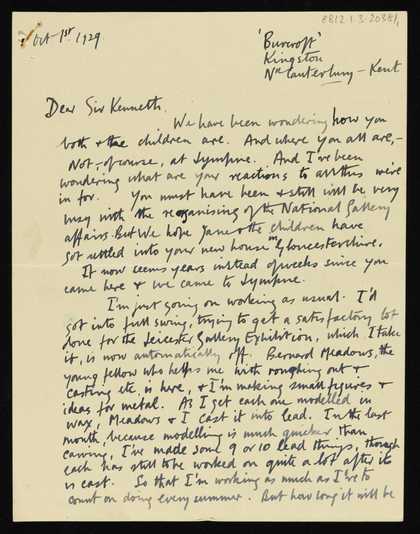 8812.1.3.2038/1
Oct-1st 1929
'Burcroft'
Kingston
Nr Canterbury - Kent
Dear Sir Kenneth.
We have been wondering how you
both & the children are. And where you all are, -
Not, - of course, at Lympne. And I've been
wondering what are your reactions to all this we're
in for. You must have been & still will be very
busy with the reorganising of the National Gallery
affairs. But We hope Jane & the children have
got settled into your new house in Gloucestershire.
It now seems years instead of weeks since you
came here & we came to Lympne.
I'm just going on working as usual. I'd
got into full swing, trying to get a satisfactory lot
done for the Leicester Gallery Exhibition, which I take
it, is now automatically off. Bernard Meadows, the
young fellow who helps me with roughing out &
casting etc, is here, & I'm making small figures &
ideas for metal. As I get each one modelled in
wax, Meadows & I cast it into lead. In the last
month, because modelling is much quicker than
carving, I've made some 9 or 10 lead things, though
each has still to be worked on quite a lot after it
is cast. So that I'm working as much as I've to
count on doing every summer. But how long it will be